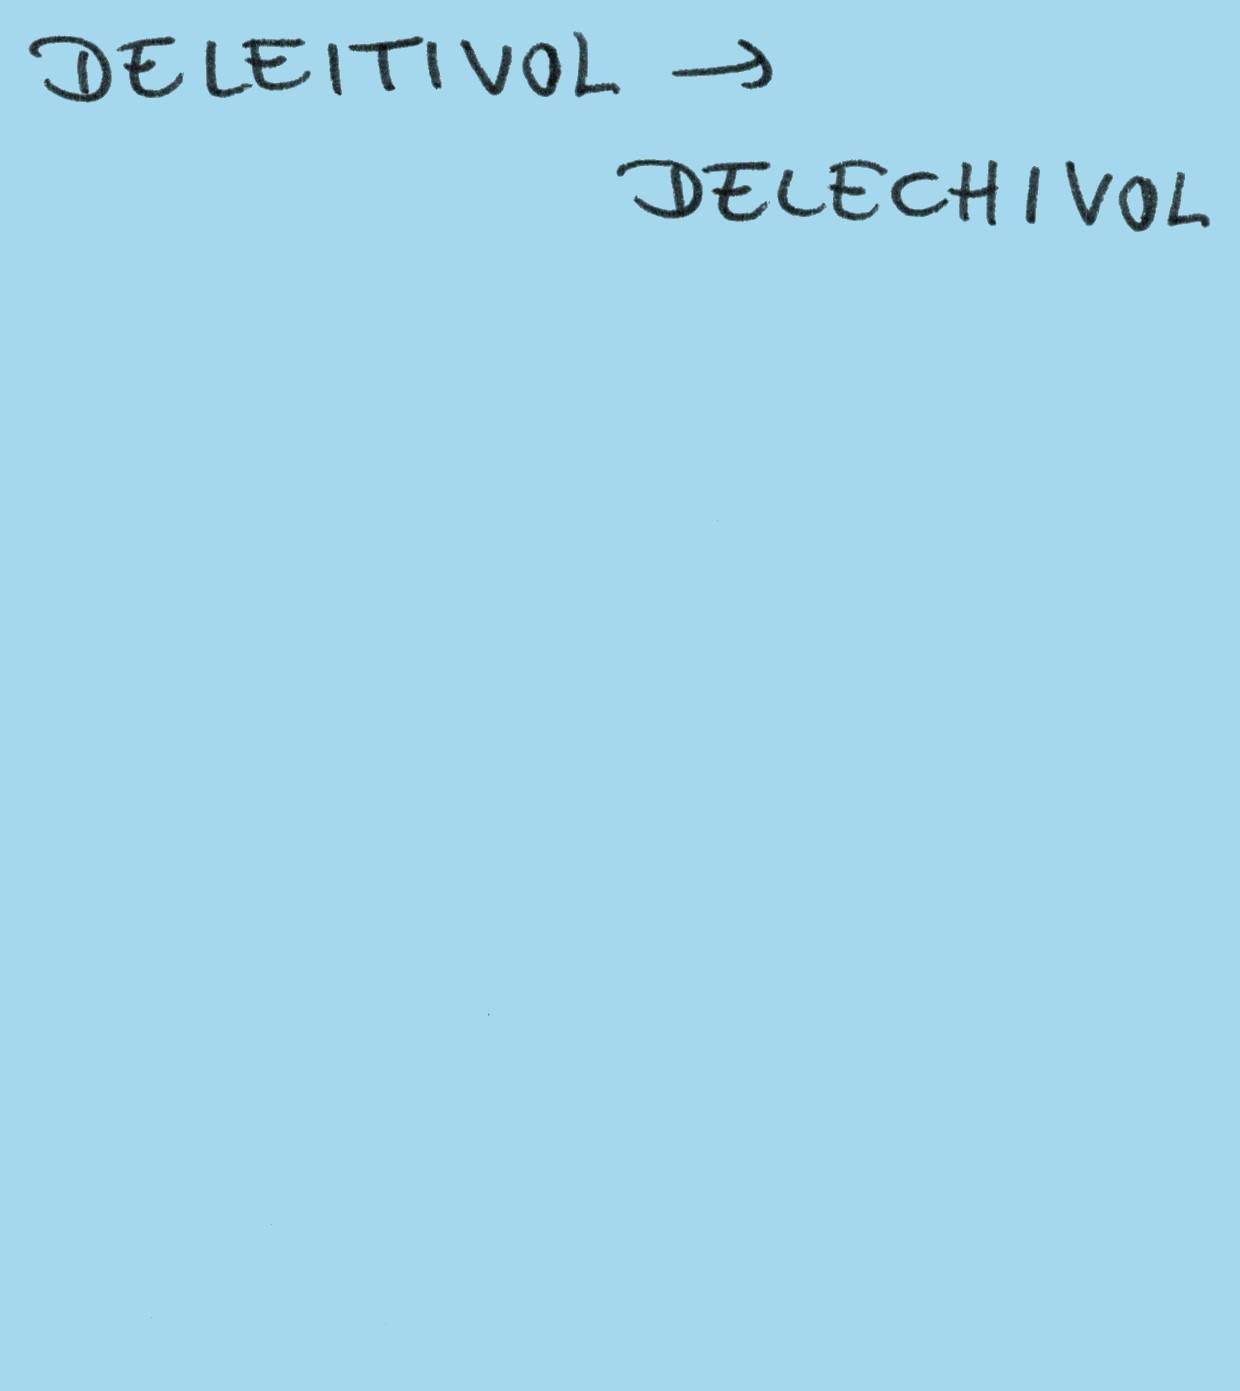 DELEITIVOL →
DELECHIVOL